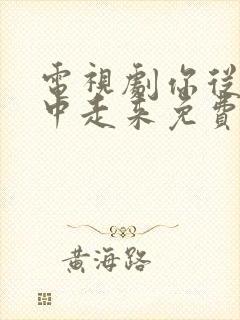 電視劇你從
中走來免費
黃海路